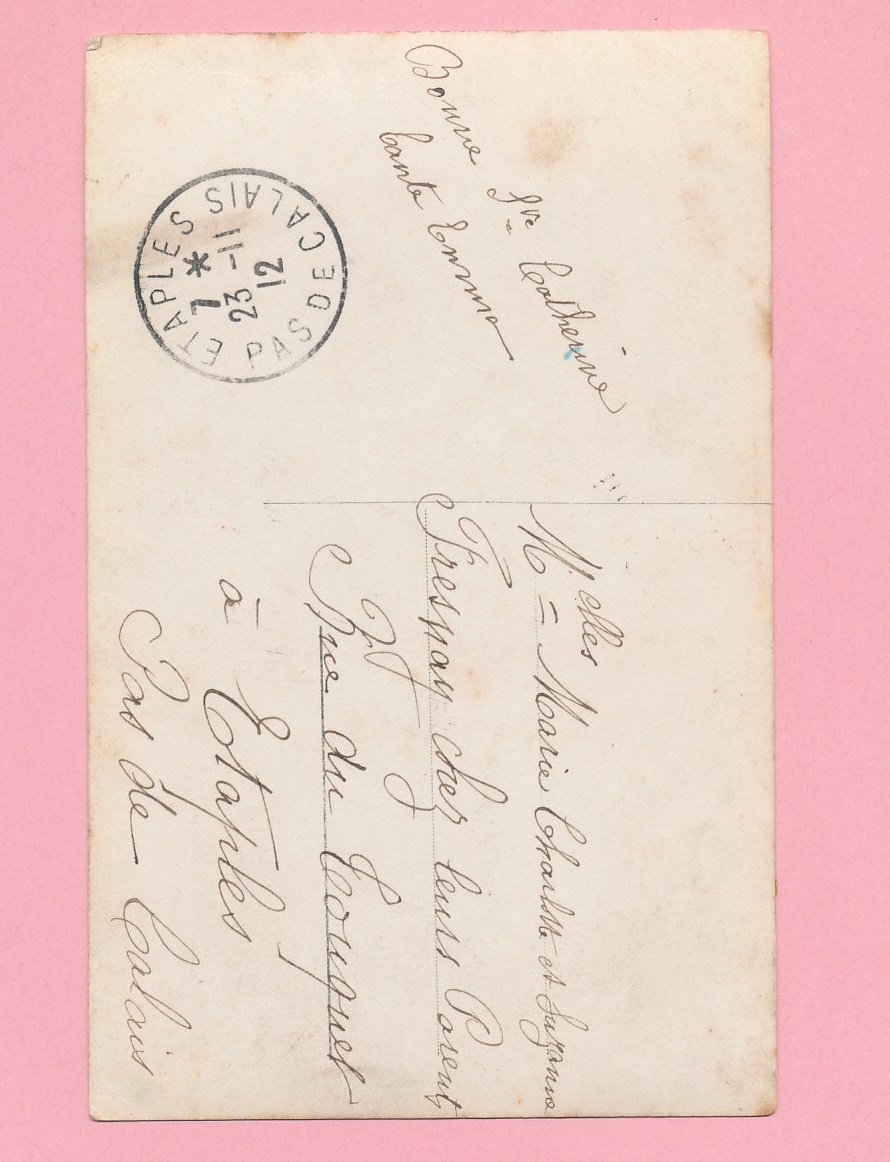 Bonne Ste Catherine
Tante Emma
ETAPLES
PAS DE CALAIS
7 *
23 - 11
12
Melles Marie Charlotte et Suzanne
Fresnay chez leurs Parents
Rue du Touquet
à Etaples
Pas de Calais